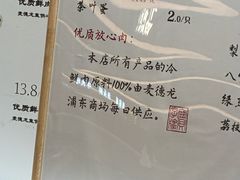 茶叶蛋
2.0/只
优质放心肉：
本店所有产品的冷
鲜肉原料100%由麦德龙
浦东商场每日供应。
优质鲜肉
13.8
优质鲜
梨
八
绿
荔枝